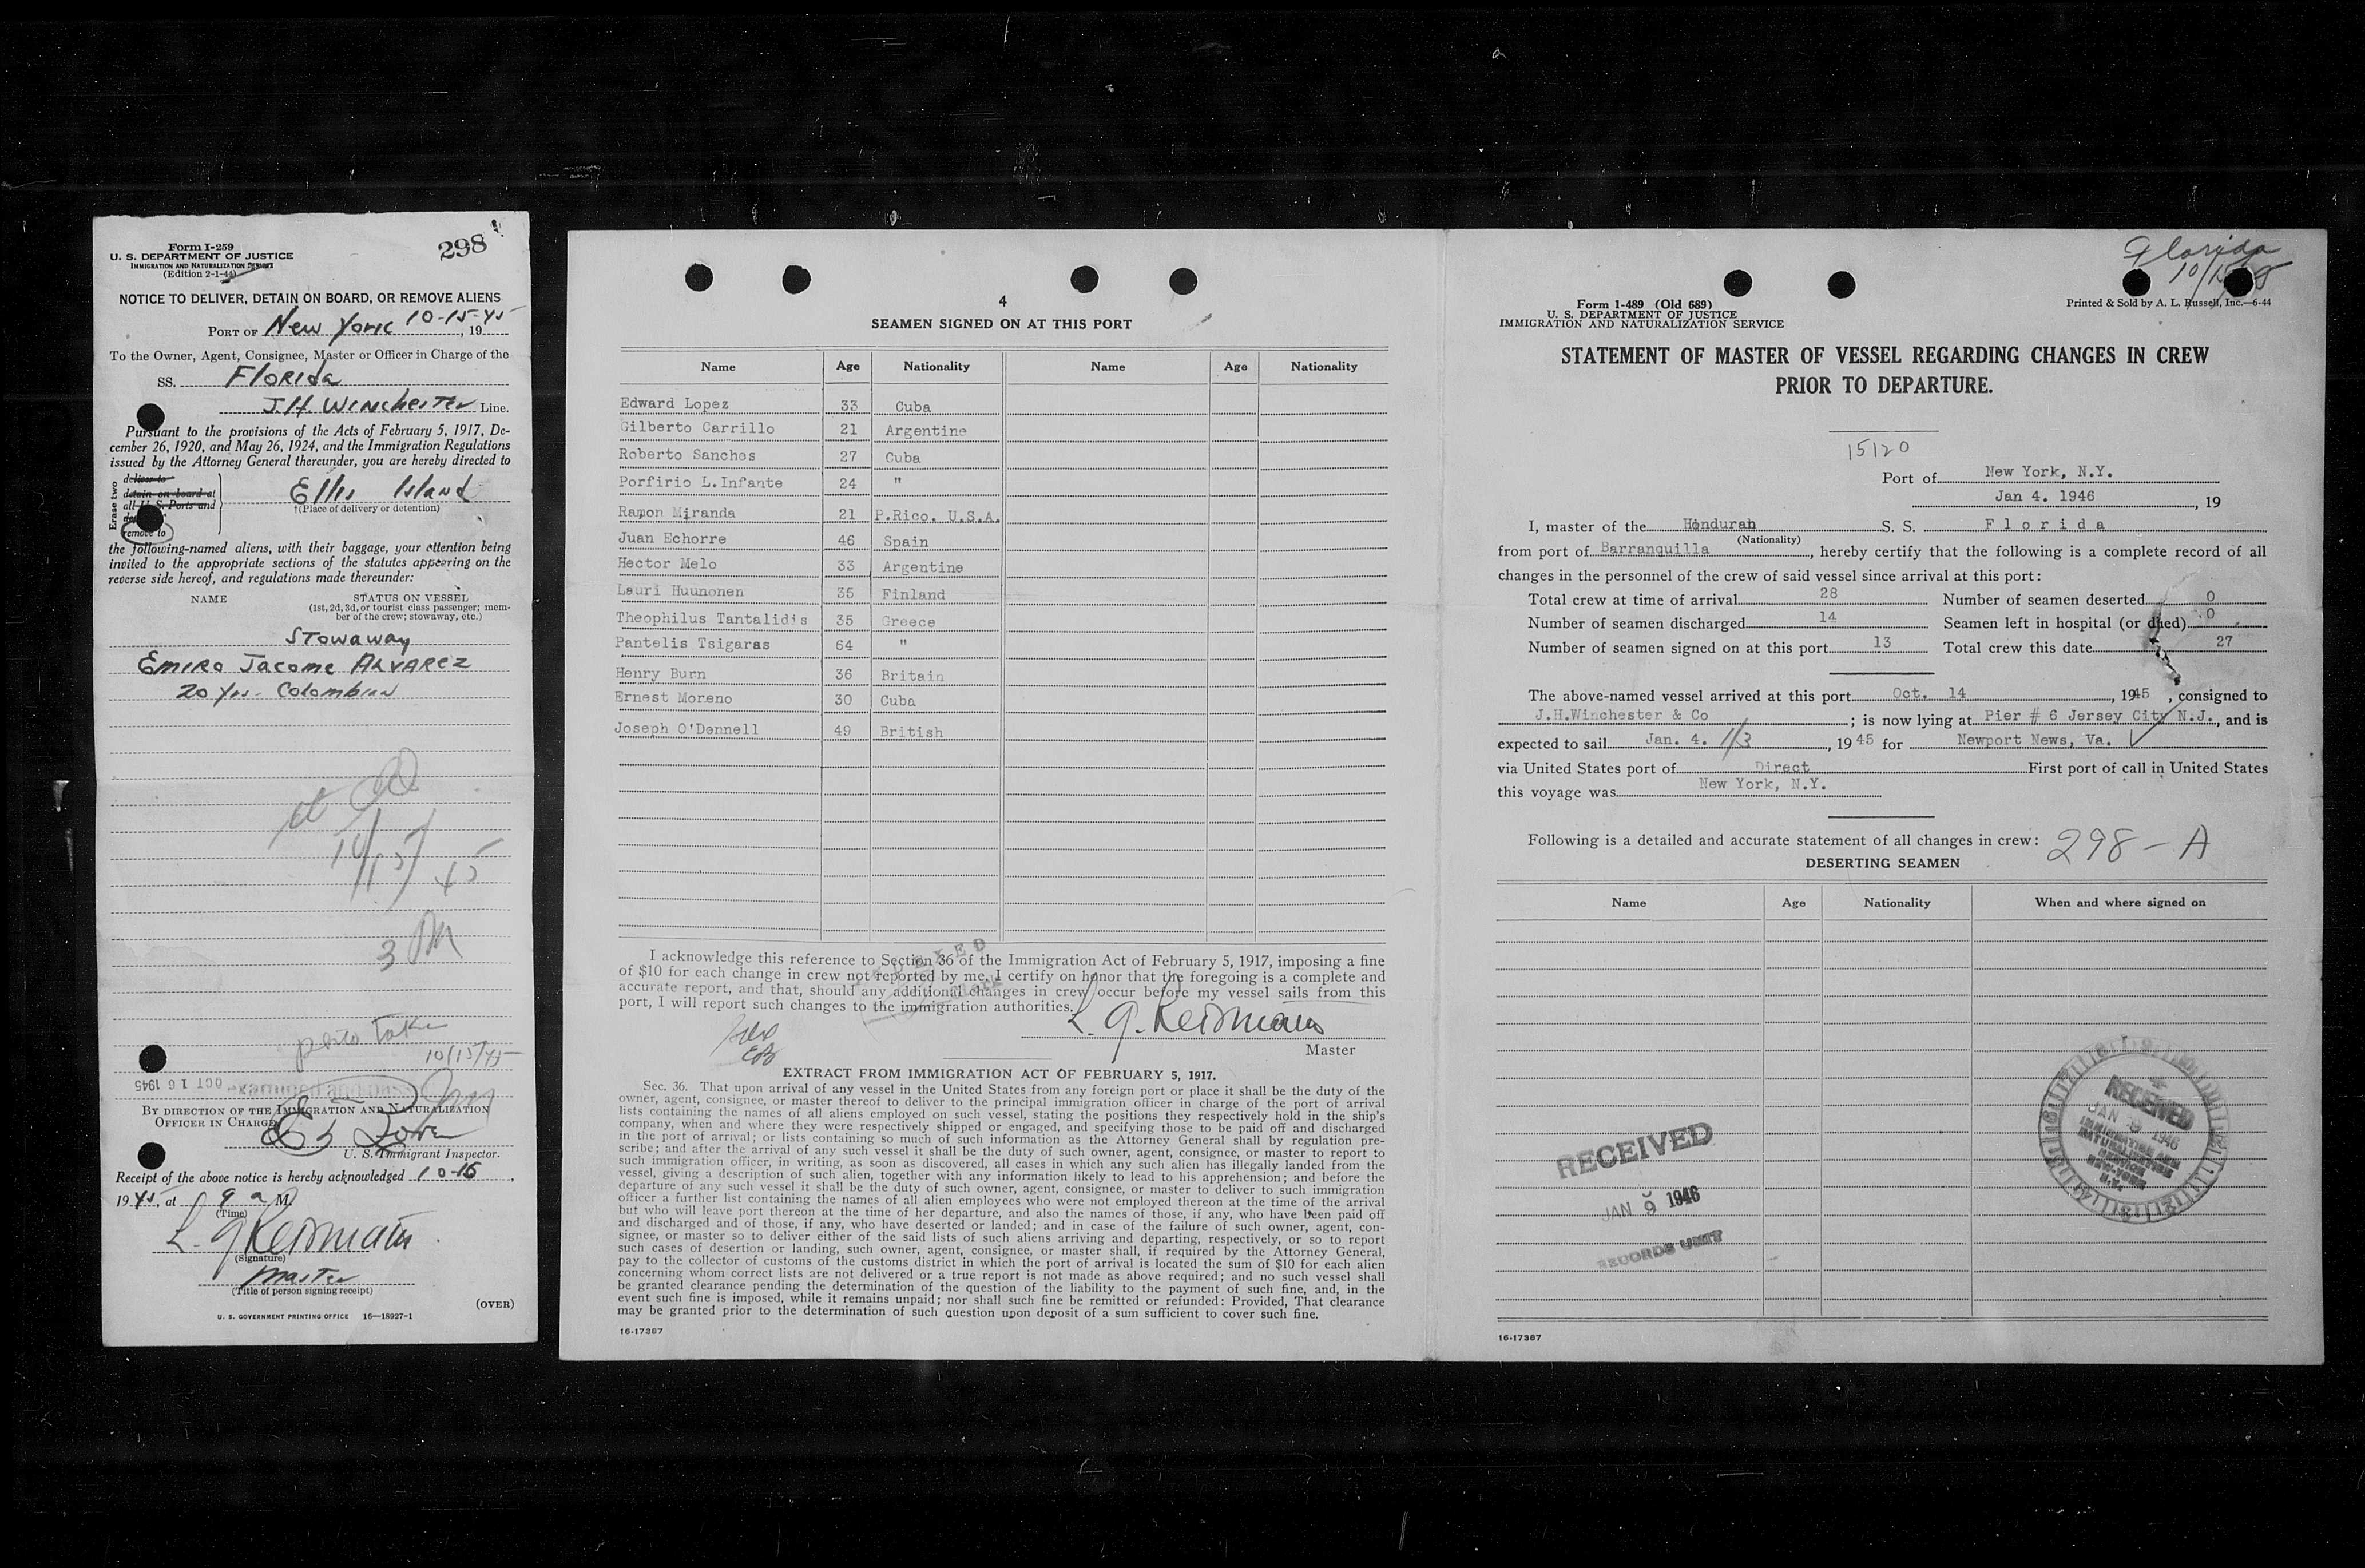 Form I-259
U. S. DEPARTMENT OF JUSTICE
IMMIGRATION AND NATURALIZATION SERVICE
(Edition 2-1-44)
298
NOTICE TO DELIVER, DETAIN ON BOARD, OR REMOVE ALIENS
PORT OF New York 10-15-45, 19
To the Owner, Agent, Consignee, Master or Officer in Charge of the
SS. Florida
J.H. Winchester Line.
Pursuant to the provisions of the Acts of February 5, 1917, De-
cember 26, 1920, and May 26, 1924, and the Immigration Regulations
issued by the Attorney General thereunder, you are hereby directed to
Erase two
deliver to
detain on board at
all U. S. Ports and
remove to
Ellis Island
†(Place of delivery or detention)
the following-named aliens, with their baggage, your attention being
invited to the appropriate sections of the statutes appearing on the
reverse side hereof, and regulations made thereunder:
NAME STATUS ON VESSEL
(1st, 2d, 3d, or tourist class passenger; mem-
ber of the crew; stowaway, etc.)
Stowaway
Emiro Jacome Alvarez
20 yrs - Colombian
10/15/45
3 PM
10/15/45
OCT 16 1945
BY DIRECTION OF THE IMMIGRATION AND NATURALIZATION
OFFICER IN CHARGE
U. S. Immigrant Inspector.
Receipt of the above notice is hereby acknowledged 10-16,
1945, at 9 a M.
(Time)
L. G. Reismann
(Signature)
Master
(Title of person signing receipt)
(OVER)
U. S. GOVERNMENT PRINTING OFFICE 16—18927-1
4
SEAMEN SIGNED ON AT THIS PORT
Name Age Nationality Name Age Nationality
Edward Lopez 33 Cuba
Gilberto Carrillo 21 Argentine
Roberto Sanches 27 Cuba
Porfirio L.Infante 24 "
Ramon Miranda 21 P.Rico. U.S.A.
Juan Echorre 46 Spain
Hector Melo 33 Argentine
Lauri Huunonen 35 Finland
Theophilus Tantalidis 35 Greece
Pantelis Tsigaras 64 "
Henry Burn 36 Britain
Ernest Moreno 30 Cuba
Joseph O'Donnell 49 British
I acknowledge this reference to Section 36 of the Immigration Act of February 5, 1917, imposing a fine
of $10 for each change in crew not reported by me. I certify on honor that the foregoing is a complete and
accurate report, and that, should any additional changes in crew occur before my vessel sails from this
port, I will report such changes to the immigration authorities.
L. G. Reismann
Master
EXTRACT FROM IMMIGRATION ACT OF FEBRUARY 5, 1917.
Sec. 36. That upon arrival of any vessel in the United States from any foreign port or place it shall be the duty of the
owner, agent, consignee, or master thereof to deliver to the principal immigration officer in charge of the port of arrival
lists containing the names of all aliens employed on such vessel, stating the positions they respectively hold in the ship's
company, when and where they were respectively shipped or engaged, and specifying those to be paid off and discharged
in the port of arrival; or lists containing so much of such information as the Attorney General shall by regulation pre-
scribe; and after the arrival of any such vessel it shall be the duty of such owner, agent, consignee, or master to report to
such immigration officer, in writing, as soon as discovered, all cases in which any such alien has illegally landed from the
vessel, giving a description of such alien, together with any information likely to lead to his apprehension; and before the
departure of any such vessel it shall be the duty of such owner, agent, consignee, or master to deliver to such immigration
officer a further list containing the names of all alien employees who were not employed thereon at the time of the arrival
but who will leave port thereon at the time of her departure, and also the names of those, if any, who have been paid off
and discharged and of those, if any, who have deserted or landed; and in case of the failure of such owner, agent, con-
signee, or master so to deliver either of the said lists of such aliens arriving and departing, respectively, or so to report
such cases of desertion or landing, such owner, agent, consignee, or master shall, if required by the Attorney General,
pay to the collector of customs of the customs district in which the port of arrival is located the sum of $10 for each alien
concerning whom correct lists are not delivered or a true report is not made as above required; and no such vessel shall
be granted clearance pending the determination of the question of the liability to the payment of such fine, and, in the
event such fine is imposed, while it remains unpaid; nor shall such fine be remitted or refunded: Provided, That clearance
may be granted prior to the determination of such question upon deposit of a sum sufficient to cover such fine.
16-17387
Florida
Form I-489 (Old 689)
U. S. DEPARTMENT OF JUSTICE
IMMIGRATION AND NATURALIZATION SERVICE
Printed & Sold by A. L. Russell, Inc.—6-44
STATEMENT OF MASTER OF VESSEL REGARDING CHANGES IN CREW
PRIOR TO DEPARTURE.
15120
Port of New York, N.Y.
Jan 4. 1946, 19
I, master of the Honduran S. S. Florida
(Nationality)
from port of Barranquilla, hereby certify that the following is a complete record of all
changes in the personnel of the crew of said vessel since arrival at this port:
Total crew at time of arrival 28 Number of seamen deserted 0
Number of seamen discharged 14 Seamen left in hospital (or died) 0
Number of seamen signed on at this port 13 Total crew this date 27
The above-named vessel arrived at this port Oct. 14, 1945, consigned to
J.H.Winchester & Co; is now lying at Pier # 6 Jersey City N.J., and is
expected to sail Jan. 4. 1/3, 1945 for Newport News, Va.
via United States port of Direct First port of call in United States
this voyage was New York, N.Y.
Following is a detailed and accurate statement of all changes in crew: 298-A
DESERTING SEAMEN
Name Age Nationality When and where signed on
RECEIVED
JAN 9 1946
RECORDS UNIT
RECEIVED
JAN 1946
IMMIGRATION AND
NATURALIZATION
SERVICE
NEW YORK
N.Y.
16-17387